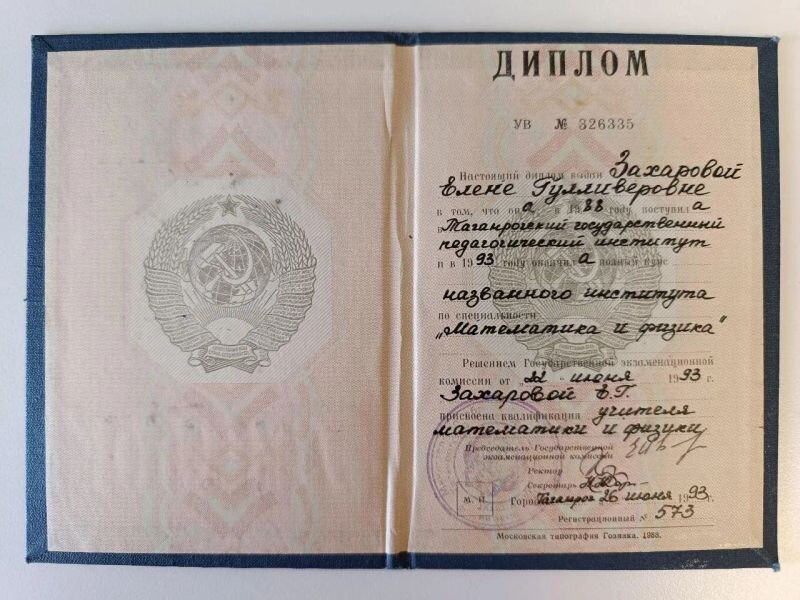 ДИПЛОМ
УВ № 326335
Настоящий диплом выдан Захаровой
Елене Гулливеровне
в том, что он а в 1988 году поступил а
в Таганрогский государственный
педагогический институт
и в 1993 году окончил а полный курс
названного института
по специальности
„Математика и физика"
Решением Государственной экзаменационной
комиссии от „22" июня 1993 г.
Захаровой Е.Г.
присвоена квалификация учителя
математики и физики
Председатель Государственной
экзаменационной комиссии
Ректор
Секретарь
М. П. Город Таганрог 26 июня 1993 г.
Регистрационный № 573
Московская типография Гознака. 1988.